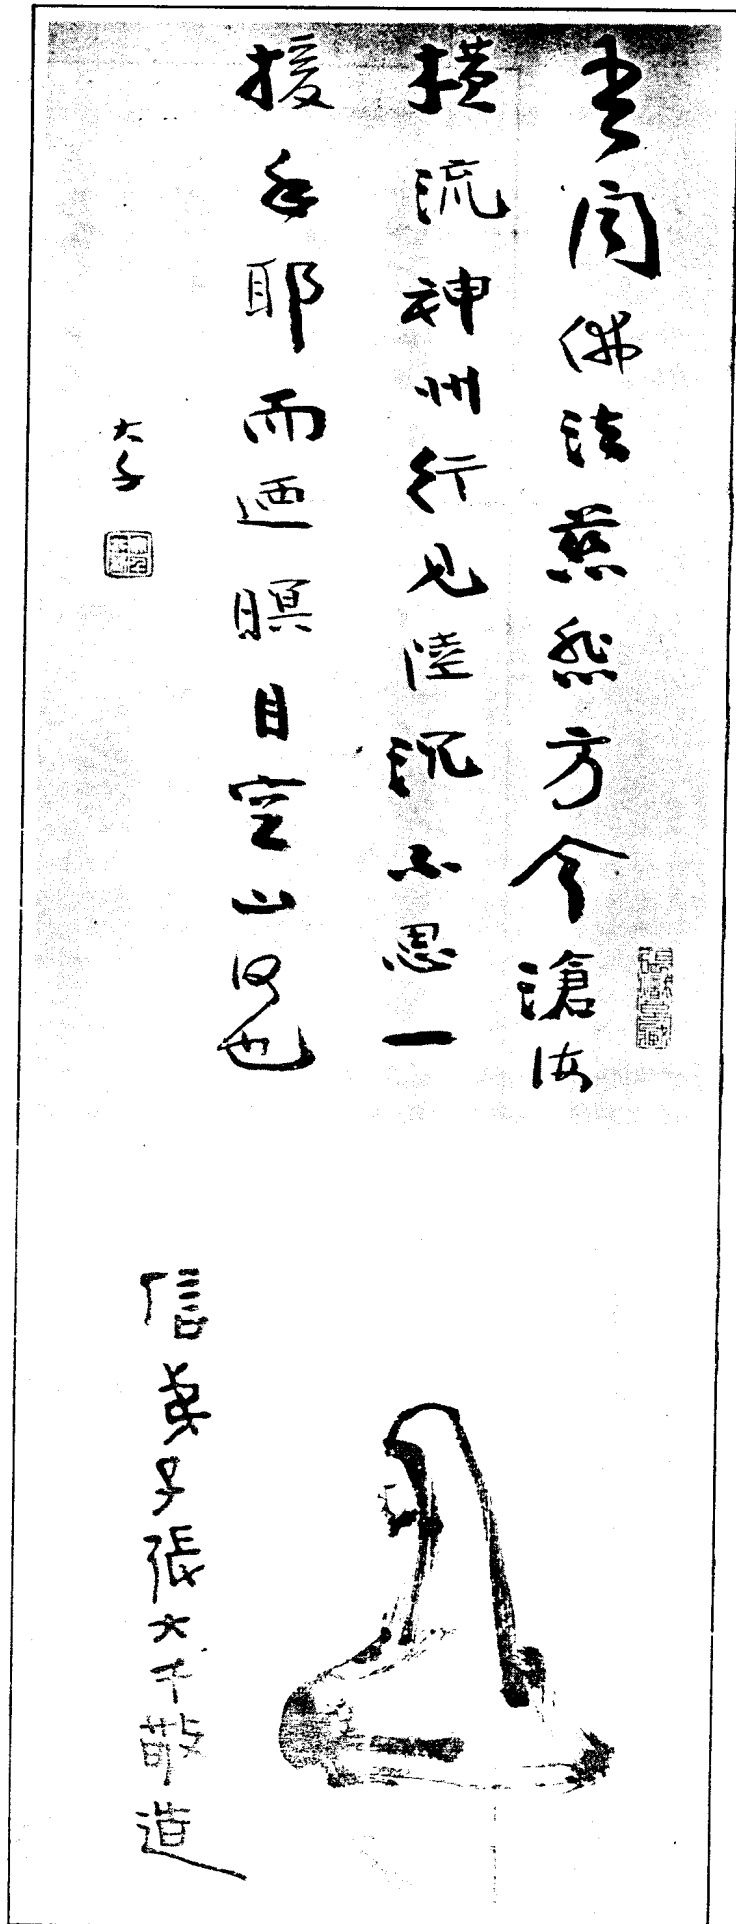 吾聞佛法慈悲方今滄海
橫流神州行見陸沉不思一
援手耶而迺瞑目空山何也
大千
信弟子張大千敬造